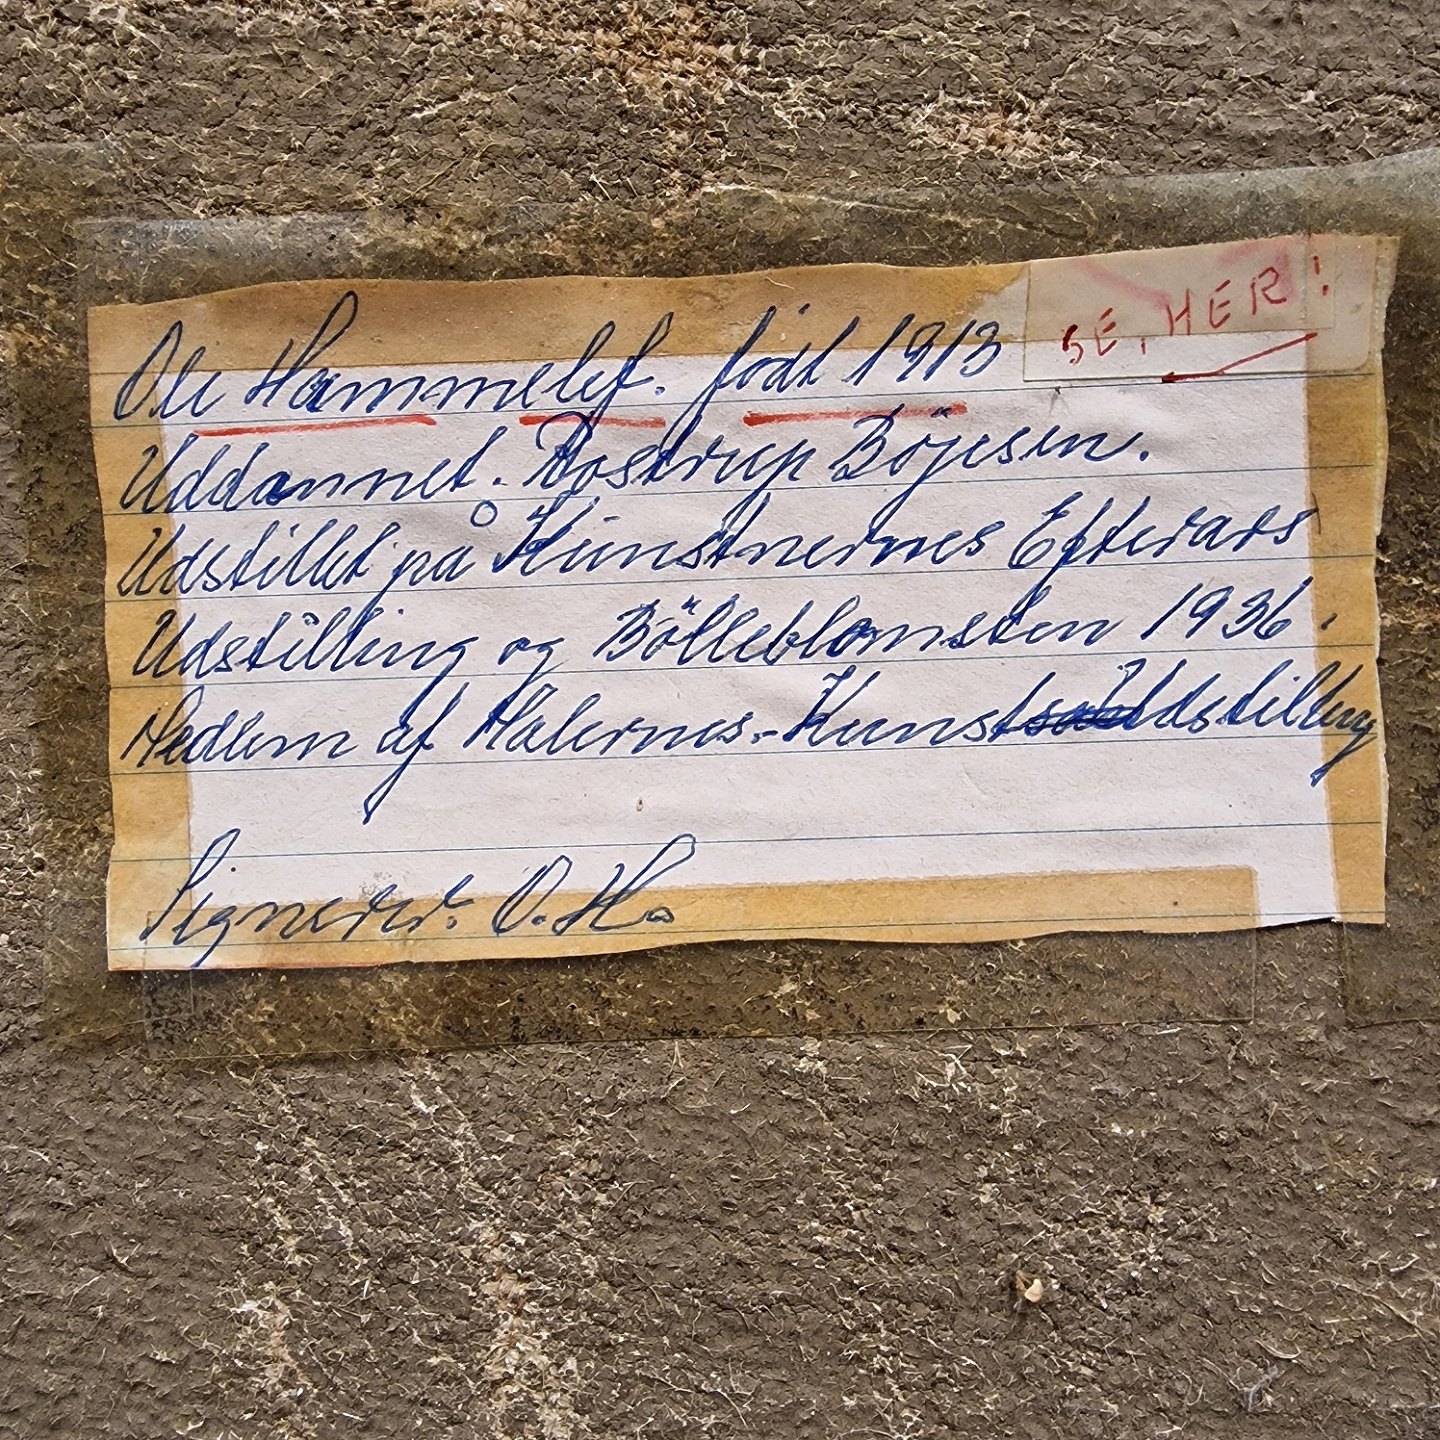 SE, HER!
Ole Hammelef. födt 1913
Uddannet. Rostrup Böjesen.
Udstillet på Kunstnernes Efterårs
Udstilling og Bölleblomsten 1936.
Medlem af Malernes-Kunst Udstilling
Signerer: O. H.